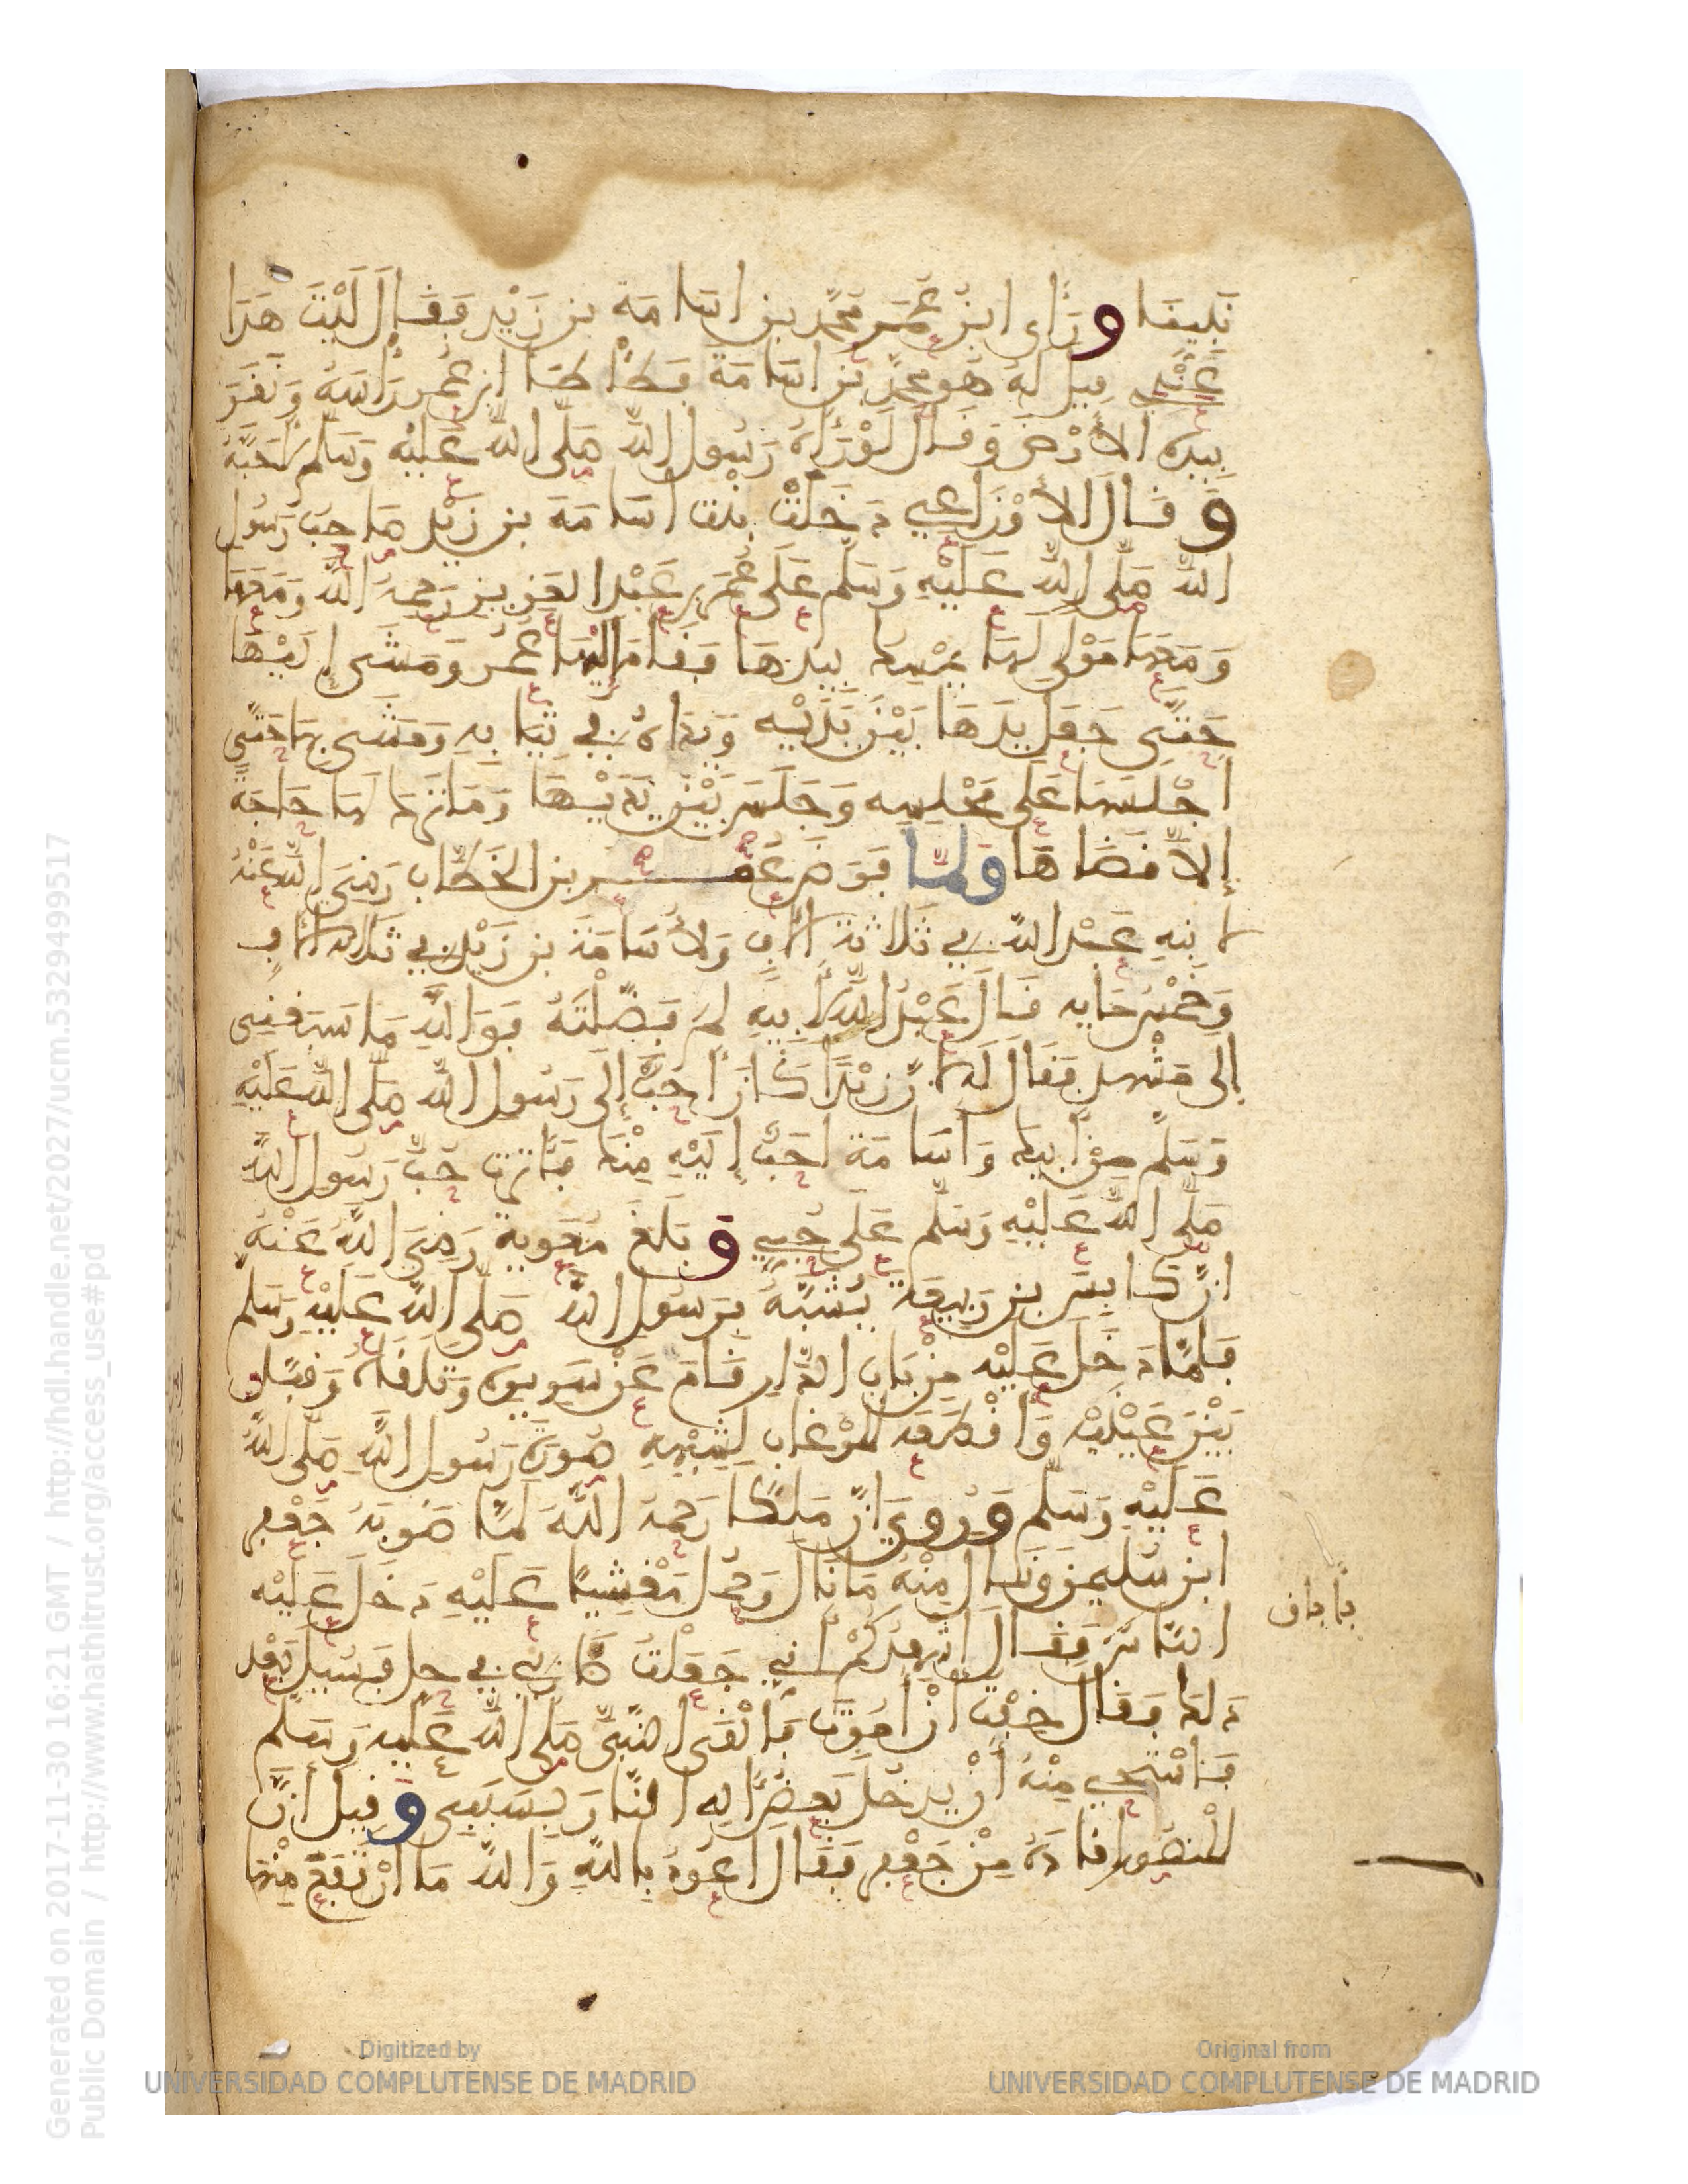 فَلِيقَا وَرَأى ابْنُ عُمَرَ مُحَمَّدَ بن اسَامَةَ بن زَيْدٍ فَقَالَ لَيْتَ هَذَا
عَبْدِي فِيلَ لَهُ هُوَ مُحَمَّدُ بْنُ اسَامَةَ فَطَأْطَأَ ابن عُمر رَأْسَهُ وَنَقَرَ
بِيَدِهِ الأرْضَ وَقَالَ لَوْ رَآهُ رَسُول اللّه صَلَّى اللّه عَلَيْهِ وَسَلم لأَحَبَّهُ
وَقَالَ الأوْزَاعِي دَخَلَتْ بِنْت اسَامَة بن زَيْد صَاحِب رَسُول
اللّه صَلَّى اللّه عَلَيْهِ وَسَلم عَلَى عُمَر بن عَبْد العَزِيز رَحِمَهُ اللّه وَمَعَهَا
وَمَعَهَا مَوْلى لَهَا يُمْسِك بِيَدِهَا فَقَامَ إِلَيْهَا عُمَر وَمَشَى إِلَيْهَا
حَتَّى جَعَلَ يَدَهَا بَيْنَ يَدَيْهِ وَيَدَاهُ في ثِيَابِهِ وَمَشَى بِهَا حَتَّى
أجْلَسَهَا عَلَى مَجْلِسِهِ وَجَلَسَ بَيْنَ يَدَيْهَا وَمَا تَرَكَ لَهَا حَاجَةً
إِلاَّ قَضَاهَا وَلمّا فَرَضَ عُمَر بن الخَطَّاب رَضِيَ اللّه عَنْهُ
لابنِهِ عَبْد اللّه في ثَلاثَة ءَالافٍ وَلأسَامَةَ بن زَيْد في ثَلاثَة ءَالافٍ
وَخَمْس مِايه قَالَ عَبْدُ اللّه لأبِيهِ لِمَ فَضَّلْتَهُ فَوَاللّهِ مَا سَبَقَنِي
إِلَى مَشْهَدٍ فَقَالَ لَهُ لأنَّ زَيْدًا كَانَ أحَبَّ إِلَى رَسُول اللّه صَلَّى اللّه عَلَيْهِ
وَسَلَّم مِنْ أبِيكَ وَأسَامَة أحَبَّ إِلَيْهِ مِنْكَ فَآثَرْتُ حُبَّ رَسُول اللّه
صَلَّى اللّه عَلَيْهِ وَسَلَّم عَلَى حُبِّي وَبَلَغَ مُعَوِيةَ رَضِيَ اللّهُ عَنْهُ
انَّ كَابِسَ بن رَبِيعَةَ يُشْبِهُ بِرَسُولِ اللّه صَلَّى اللّه عَلَيْهِ وَسَلم
فَلَمَّا دَخَلَ عَلَيْهِ مِنْ بَابِ الدَّارِ قَامَ عَنْ سَرِيرِهِ وَتَلَقَّاهُ وَقَبَّلَ
بَيْنَ عَيْنَيْهِ وَأقْطَعَهُ المِرْغَاب لِشَبَهِهِ صُورَة رَسُول اللّه صَلَّى اللّه
عَلَيْهِ وَسَلَّم وَرُوِيَ انَّ مَلِكًا رَحِمَهُ اللّهُ لَمَّا ضَرَبَهُ جَعْفَر
ابن سُلَيمن وَنَالَ مِنْهُ مَا نَالَ وَحُمِلَ مَغْشِيًا عَلَيْهِ دَخَلَ عَلَيْهِ
النَّاسُ فَقَالَ أشْهِدُكُمْ أنِّي جَعَلْتُ ضَارِبِي في حِلٍ فَسُيِلَ بَعْد
ذَلِك فَقَالَ خِفْتُ أنْ أمُوتَ فَألْقَى النَّبِيَّ صَلَّى اللّه عَلَيْهِ وَسَلَّم
فَأسْتَحِي مِنْهُ أنْ يَدْخُلَ بَعْضُ آلِهِ النَّارَ بِسَبَبِي وَقِيلَ إنَّ
المَنْصُورَ أقَادَهُ مِنْ جَعْفَر فَقَالَ أعُوذُ بِاللّه وَاللّه مَا ارْتَفَعَ مِنْهَا